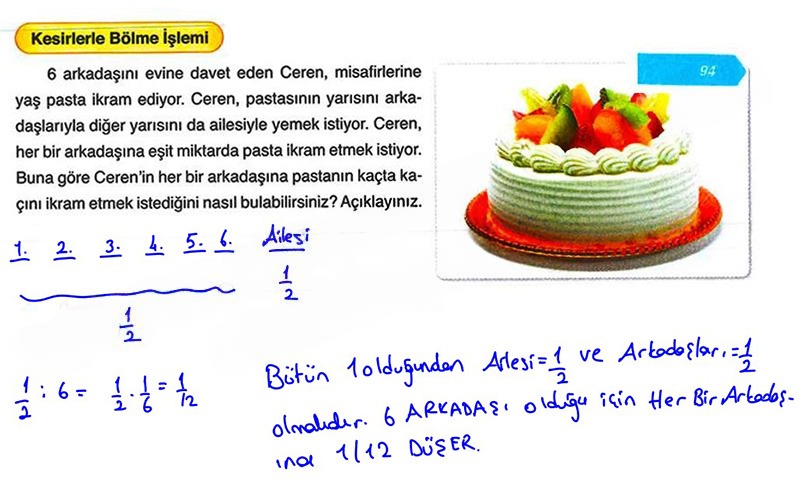 Kesirlerle Bölme İşlemi
94
6 arkadaşını evine davet eden Ceren, misafirlerine
yaş pasta ikram ediyor. Ceren, pastasının yarısını arka-
daşlarıyla diğer yarısını da ailesiyle yemek istiyor. Ceren,
her bir arkadaşına eşit miktarda pasta ikram etmek istiyor.
Buna göre Ceren'in her bir arkadaşına pastanın kaçta ka-
çını ikram etmek istediğini nasıl bulabilirsiniz? Açıklayınız.
1. 2. 3. 4. 5. 6. Ailesi
1/2
1/2
1/2 : 6 = 1/2 . 1/6 = 1/12
Bütün 1 olduğundan Ailesi = 1/2 ve Arkadaşları = 1/2
olmalıdır. 6 ARKADAŞI olduğu için Her Bir Arkadaş-
ına 1/12 DÜŞER.